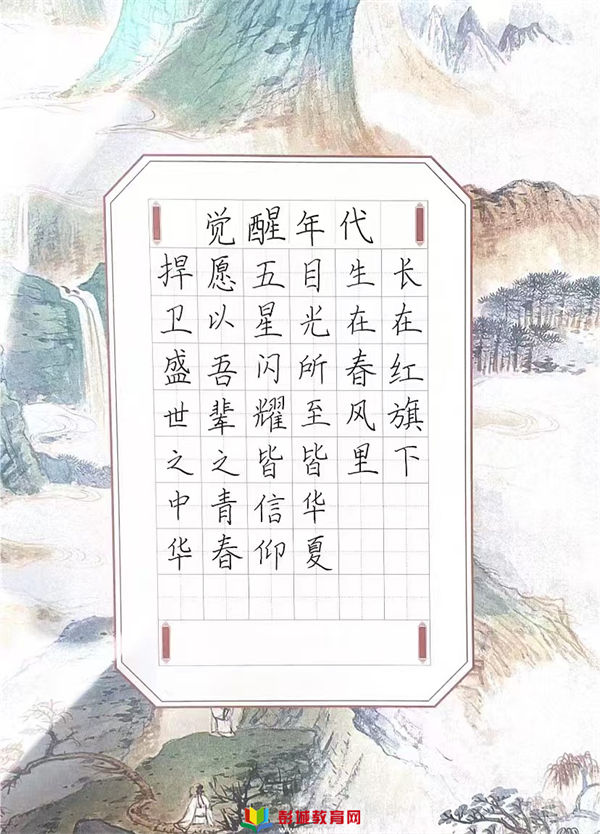 觉醒年代
长在红旗下
生在春风里
目光所至皆华夏
五星闪耀皆信仰
愿以吾辈之青春
捍卫盛世之中华
彭城教育网